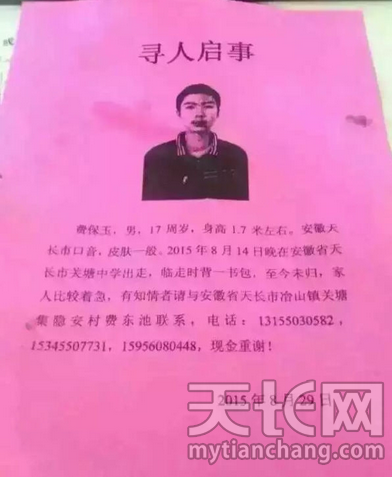 寻人启事
费保玉，男，17 周岁，身高 1.7 米左右。安徽天
长市口音，皮肤一般。2015 年 8 月 14 日晚在安徽省天
长市关塘中学出走，临走时背一书包，至今未归，家
人比较着急，有知情者请与安徽省天长市冶山镇关塘
集隐安村费东池联系，电话：13155030582，
15345507731，15956080448，现金重谢！
2015 年 8 月 29 日
天长网
mytianchang.com